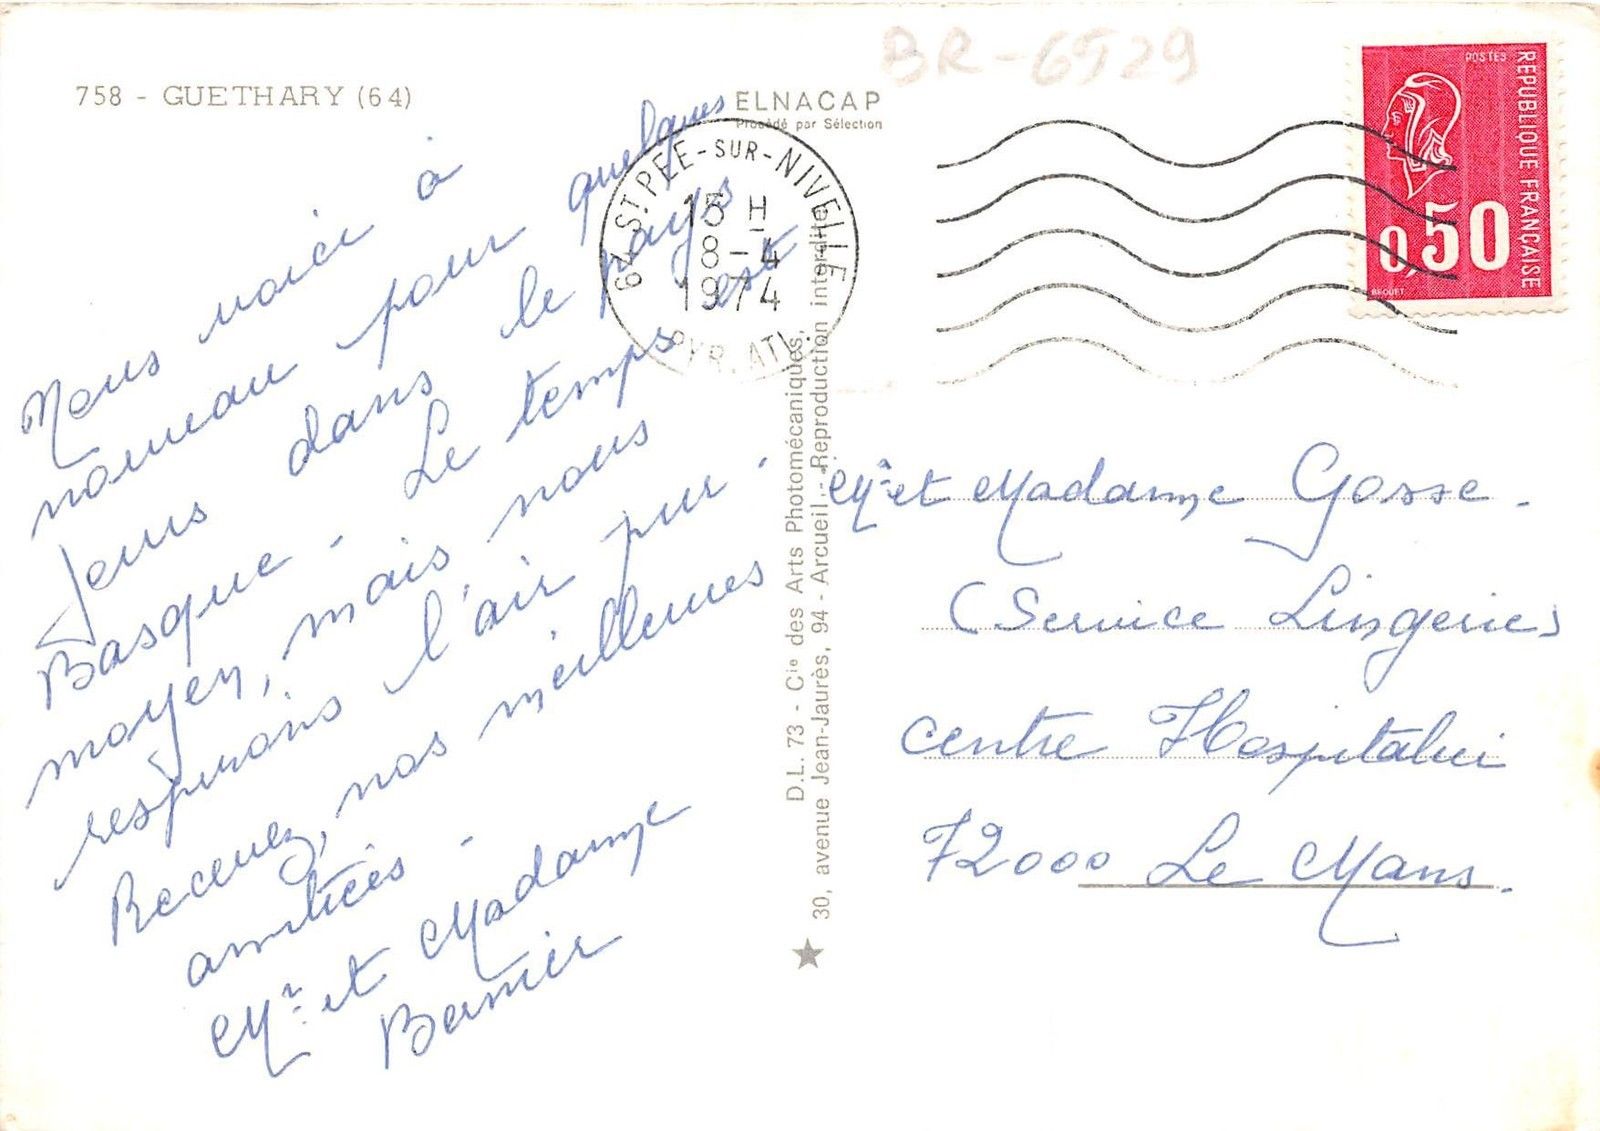 BR-6529
758 - GUETHARY (64)
ELNACAP
Procédé par Sélection
64 ST. PEE-SUR-NIVELLE
15 H
8-4
1974
PYR. ATL.
POSTES
REPUBLIQUE FRANÇAISE
0,50
BEQUET
Nous voici à
nouveau pour quelques
jours dans le pays
Basque - Le temps est
moyen, mais nous
respirons l'air pur -
Recevez, nos meilleures
amitiés -
Mr et Madame
Bernier
D.L. 73 - Cie des Arts Photomécaniques,
30, avenue Jean-Jaurès, 94 - Arcueil - Reproduction interdite
Mr et Madame Gosse -
(Service Lingerie)
centre Hospitalier
72000 Le Mans.